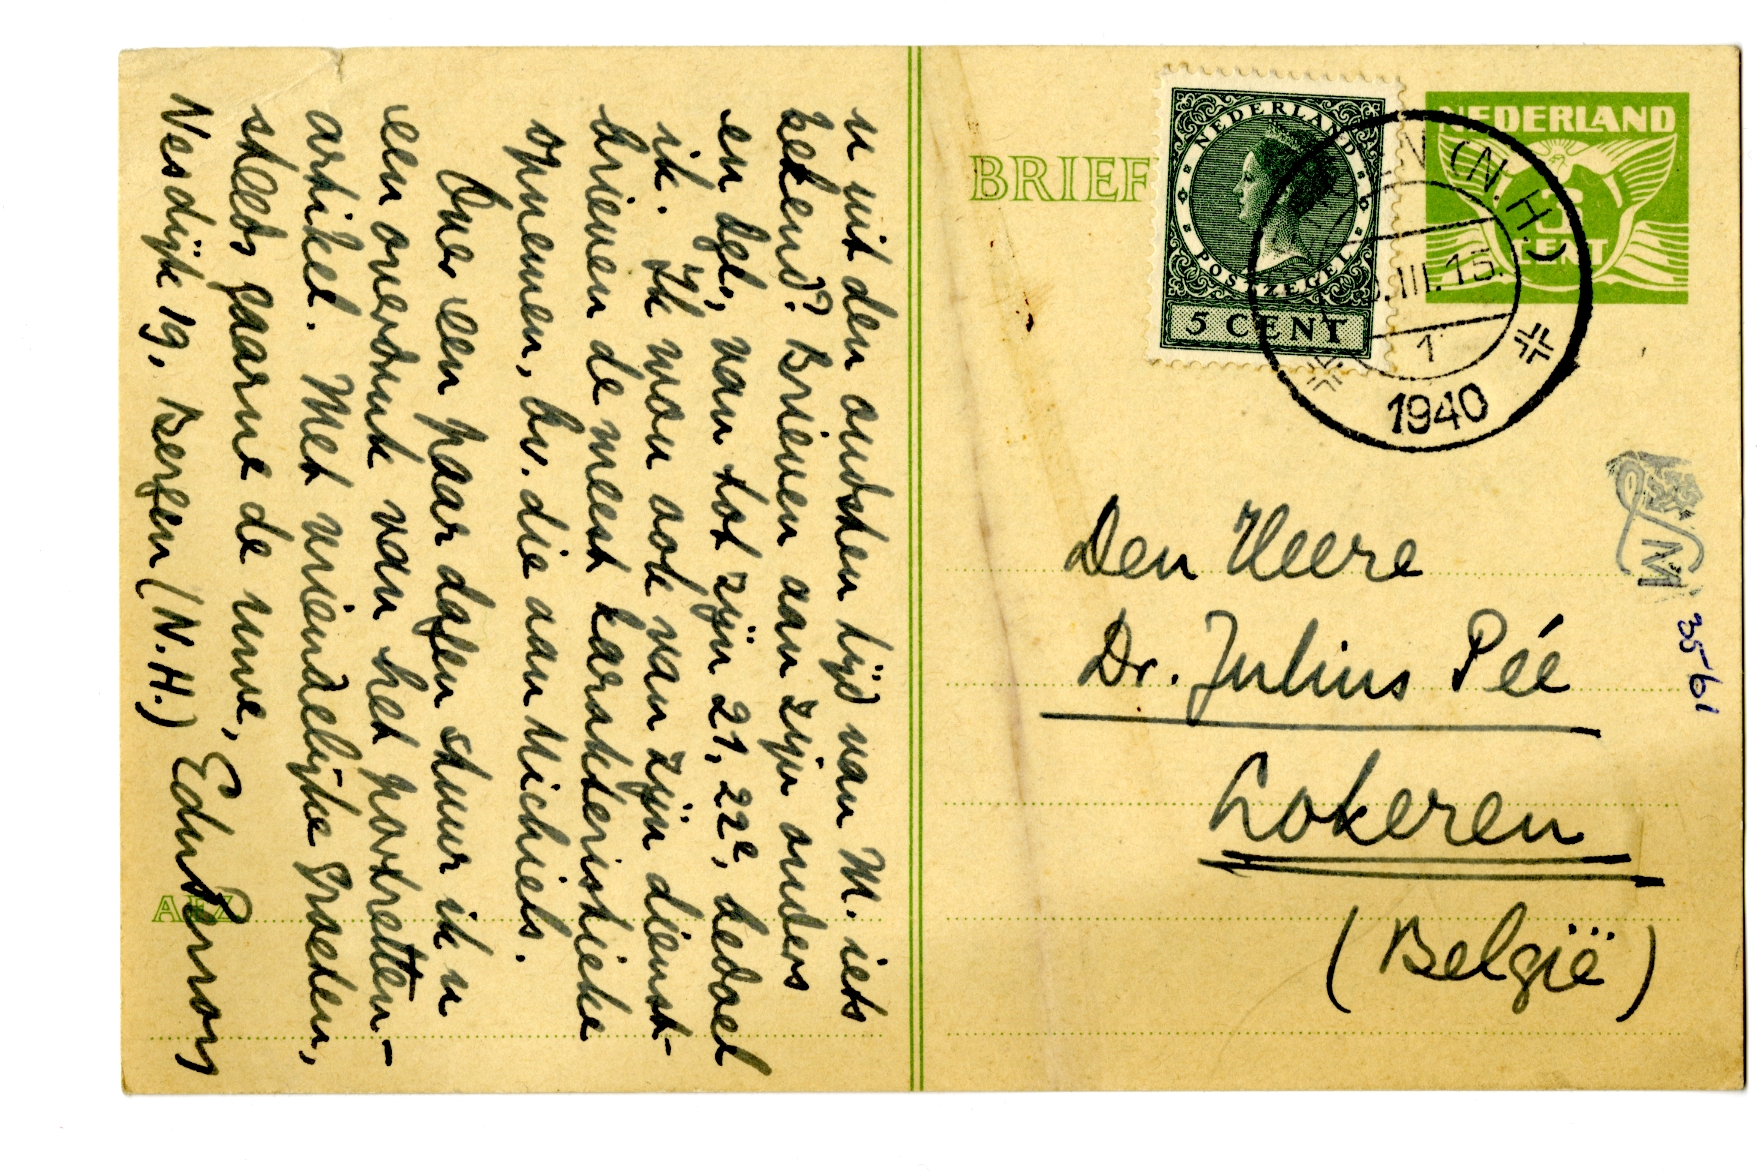 u uit den oudsten tijd van M. iets
bekend? Brieven aan zijn ouders
en dgl., van tot zijn 21, 22e, bedoel
ik. Ik wou ook van zijn dienst-
brieven de meest karakteristieke
opnemen, bv. die aan Michiels.
Over een paar dagen stuur ik u
een overdruk van het portretten-
artikel. Met vriendelijke groeten,
steeds gaarne de uwe,
Nesdijk 19, Bergen (N.H.) EduPerron
AFZ
BRIEF
NEDERLAND
POSTZEGEL
5 CENT
NEDERLAND
3
CENT
N (N.H.)
.III.15.
1
1940
Den Heere
Dr. Julius Pée
Lokeren
(België)
M
3561